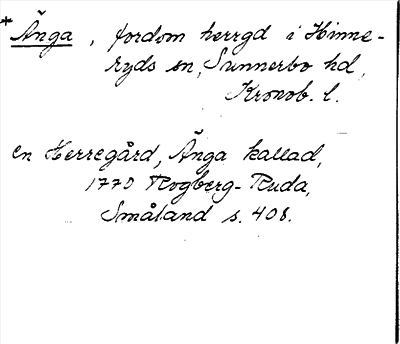 * Änga, fordom herrgd i Hinne-
ryds sn, Sunnerbo hd,
Kronob. l.
en Herregård, Änga kallad,
1770 Rogberg-Ruda,
Småland s. 408.